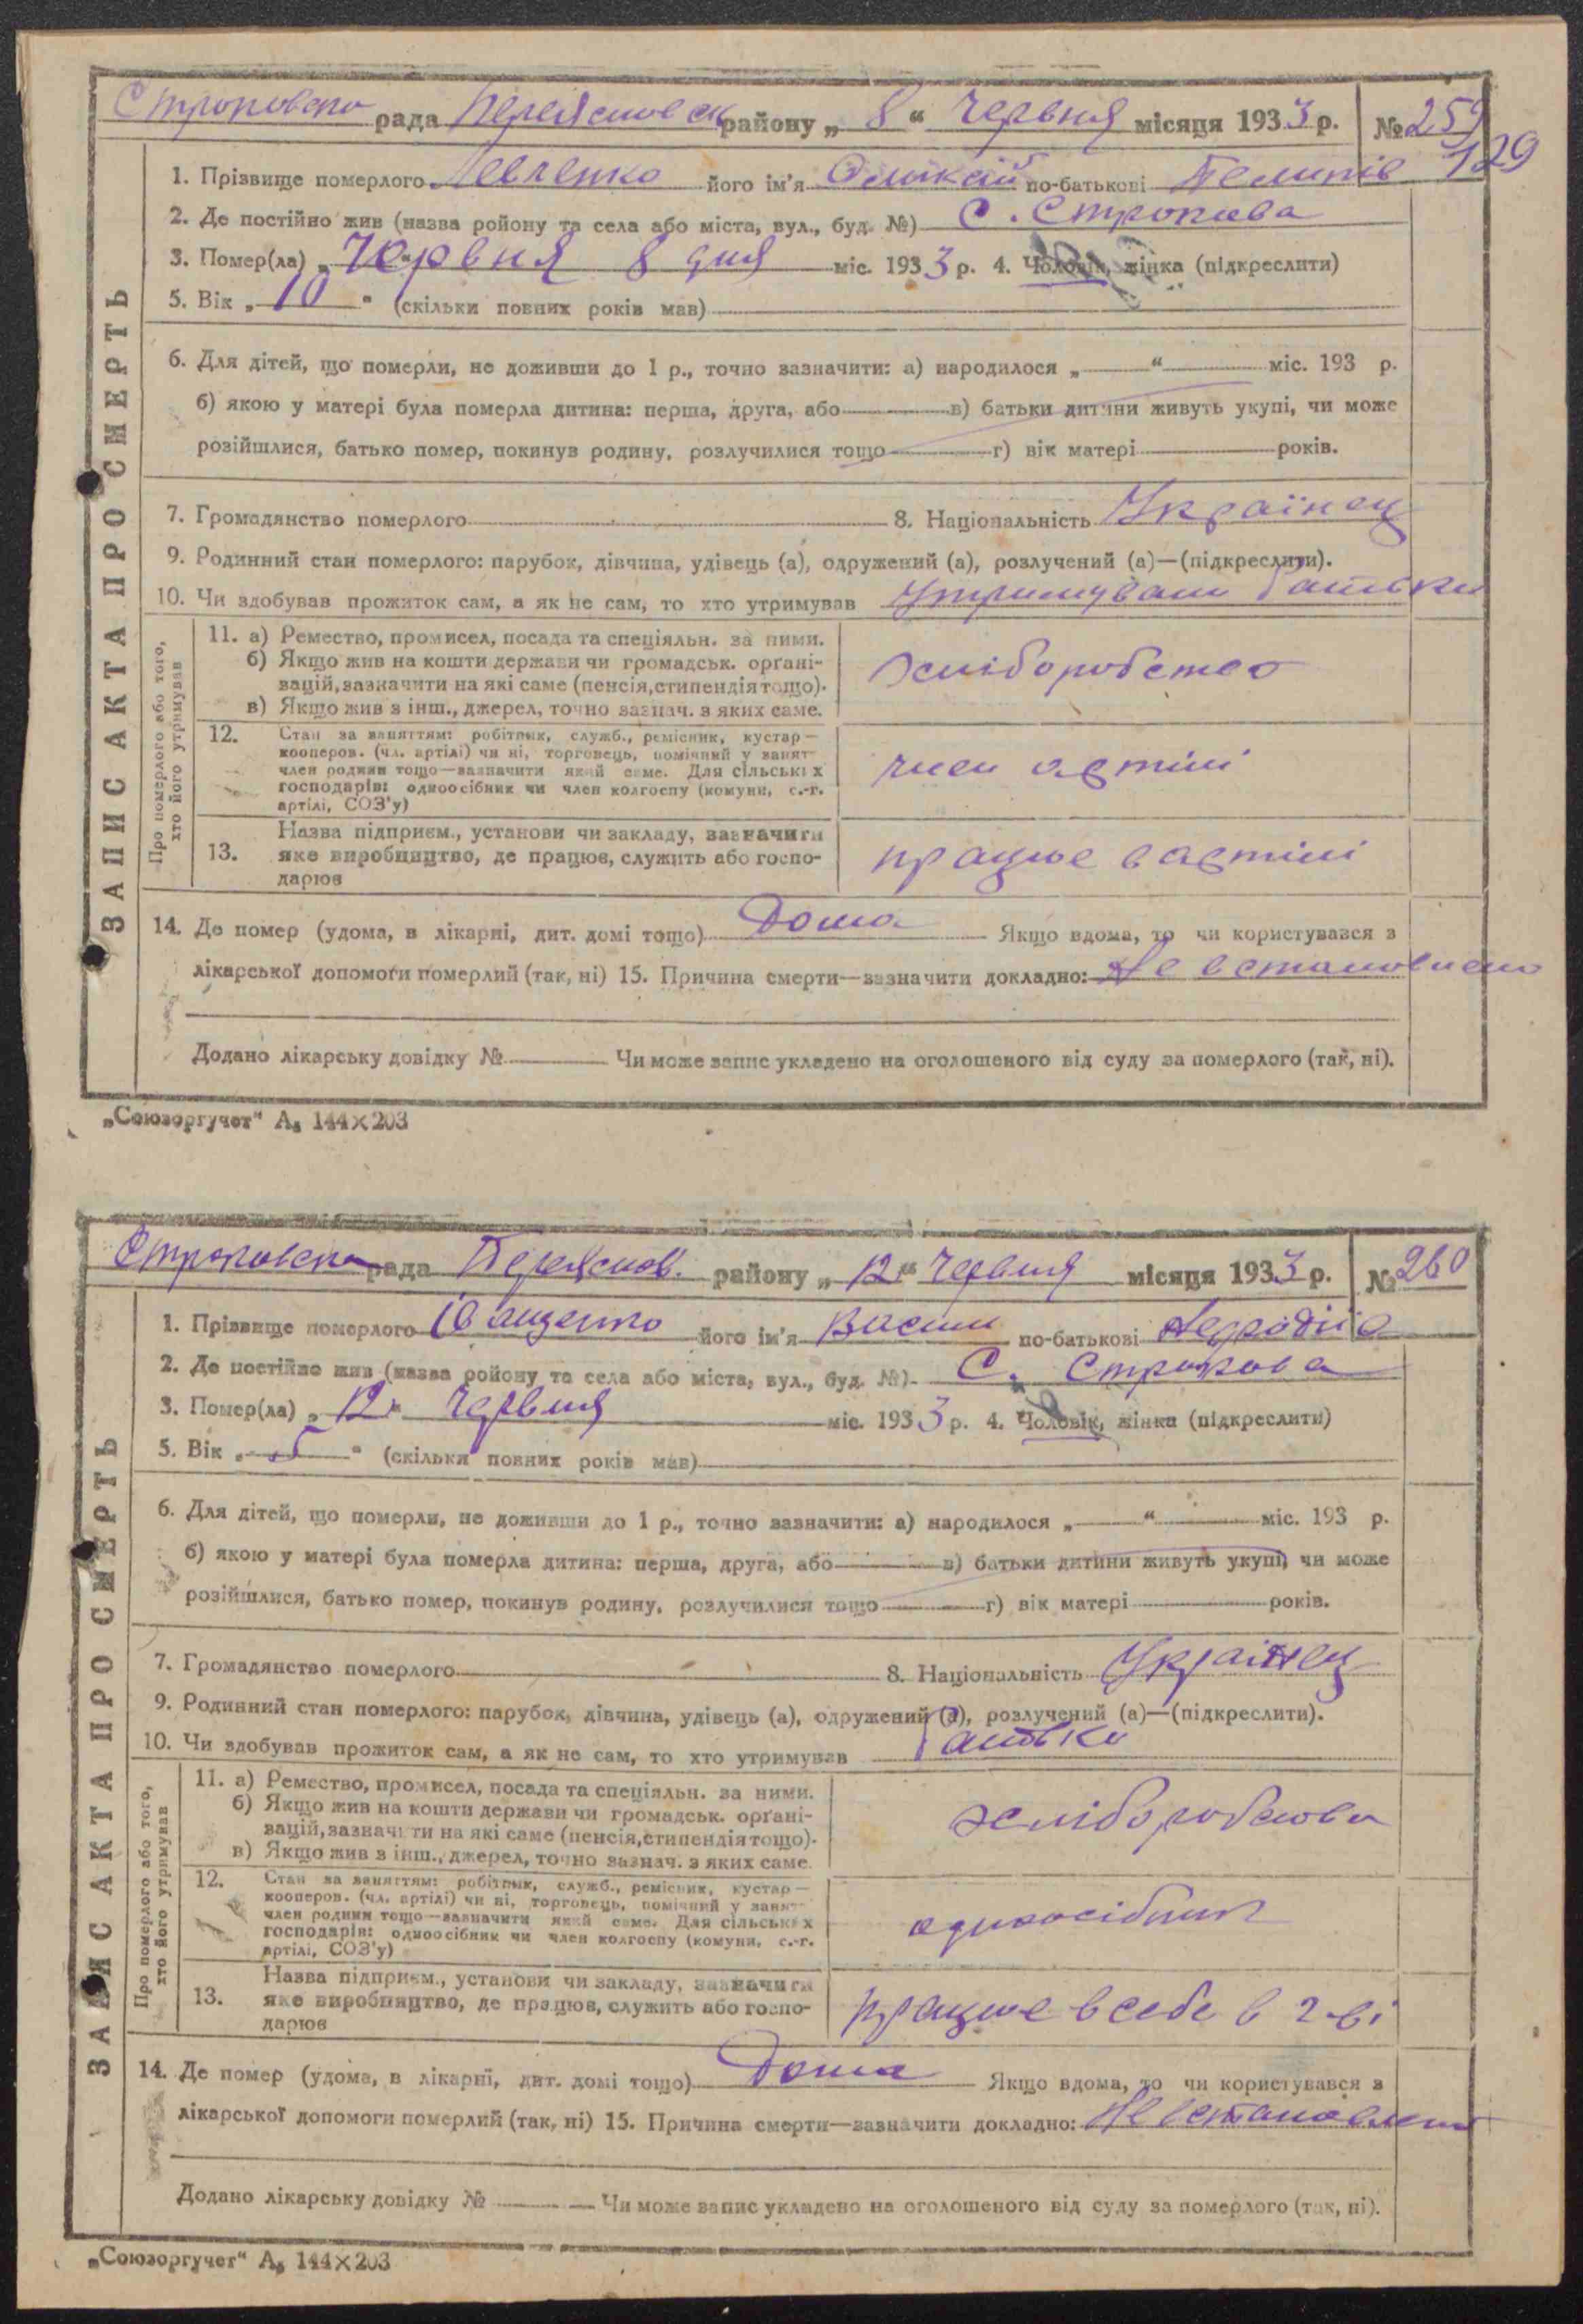 Строковска рада Переяславск району „ 8 “ Червня місяця 1933 р. № 259
129
1. Прізвище померлого Левченко його ім'я по-батькові Пелипів
2. Де постійно жив (назва ройону та села або міста, вул., буд. №) С. Строкова
3. Помер(ла) „ Червня 8 дня міс. 1933 р. 4. Чоловік, жінка (підкреслити)
5. Вік „ 10 “ (скільки повних років мав)
6. Для дітей, що померли, не доживши до 1 р., точно зазначити: а) народилося „ “ міс. 193 р.
б) якою у матері була померла дитина: перша, друга, або в) батьки дитини живуть укупі, чи може
розійшлися, батько помер, покинув родину, розлучилися тощо г) вік матері років.
7. Громадянство померлого 8. Національність Українец
9. Родинний стан померлого: парубок, дівчина, удівець (а), одружений (а), розлучений (а)—(підкреслити).
10. Чи здобував прожиток сам, а як не сам, то хто утримував Утримували батьки
ЗАПИС АКТА ПРО СМЕРТЬ
Про померлого або того, хто його утримував
11. а) Ремество, промисел, посада та спеціяльн. за ними.
б) Якщо жив на кошти держави чи громадськ. орґані-
зацій, зазначити на які саме (пенсія, стипендія тощо).
в) Якщо жив з інш., джерел, точно зазнач. з яких саме.
хліборобство
12. Стан за заняттям: робітник, служб., ремісник, кустар—
кооперов. (чл. артілі) чи ні, торговець, помічний у занят-
член родини тощо—зазначити який саме. Для сільських
господарів: одноосібник чи член колгоспу (комуни, с.-г.
артілі, СОЗ'у)
член артілі
13. Назва підприєм., установи чи закладу, зазначити
яке виробництво, де працює, служить або госпо-
дарює
працює в артілі
14. Де помер (удома, в лікарні, дит. домі тощо) Дома Якщо вдома, то чи користувався з
лікарської допомоги померлий (так, ні) 15. Причина смерти—зазначити докладно: Не встановлено
Додано лікарську довідку № Чи може запис укладено на оголошеного від суду за померлого (так, ні).
„Союзоргучет“ А₅ 144×203
Строковска рада Переяслов. району „ 12 “ Червня місяця 1933 р. № 260
1. Прізвище померлого Іващенко його ім'я Васил по-батькові
2. Де постійно жив (назва ройону та села або міста, вул., буд. №) С. Строкова
3. Помер(ла) „ 12 “ Червня міс. 1933 р. 4. Чоловік, жінка (підкреслити)
5. Вік „ 5 “ (скільки повних років мав)
6. Для дітей, що померли, не доживши до 1 р., точно зазначити: а) народилося „ “ міс. 193 р.
б) якою у матері була померла дитина: перша, друга, або в) батьки дитини живуть укупі, чи може
розійшлися, батько помер, покинув родину, розлучилися тощо г) вік матері років.
7. Громадянство померлого 8. Національність Українец
9. Родинний стан померлого: парубок, дівчина, удівець (а), одружений (а), розлучений (а)—(підкреслити).
10. Чи здобував прожиток сам, а як не сам, то хто утримував батьки
ЗАПИС АКТА ПРО СМЕРТЬ
Про померлого або того, хто його утримував
11. а) Ремество, промисел, посада та спеціяльн. за ними.
б) Якщо жив на кошти держави чи громадськ. орґані-
зацій, зазначити на які саме (пенсія, стипендія тощо).
в) Якщо жив з інш., джерел, точно зазнач. з яких саме.
12. Стан за заняттям: робітник, служб., ремісник, кустар—
кооперов. (чл. артілі) чи ні, торговець, помічний у занят-
член родини тощо—зазначити який саме. Для сільських
господарів: одноосібник чи член колгоспу (комуни, с.-г.
артілі, СОЗ'у)
одноосібник
13. Назва підприєм., установи чи закладу, зазначити
яке виробництво, де працює, служить або госпо-
дарює
працює в себе в г-ві
14. Де помер (удома, в лікарні, дит. домі тощо) Дома Якщо вдома, то чи користувався з
лікарської допомоги померлий (так, ні) 15. Причина смерти—зазначити докладно: Не встановлено
Додано лікарську довідку № Чи може запис укладено на оголошеного від суду за померлого (так, ні).
„Союзоргучет“ А₅ 144×203